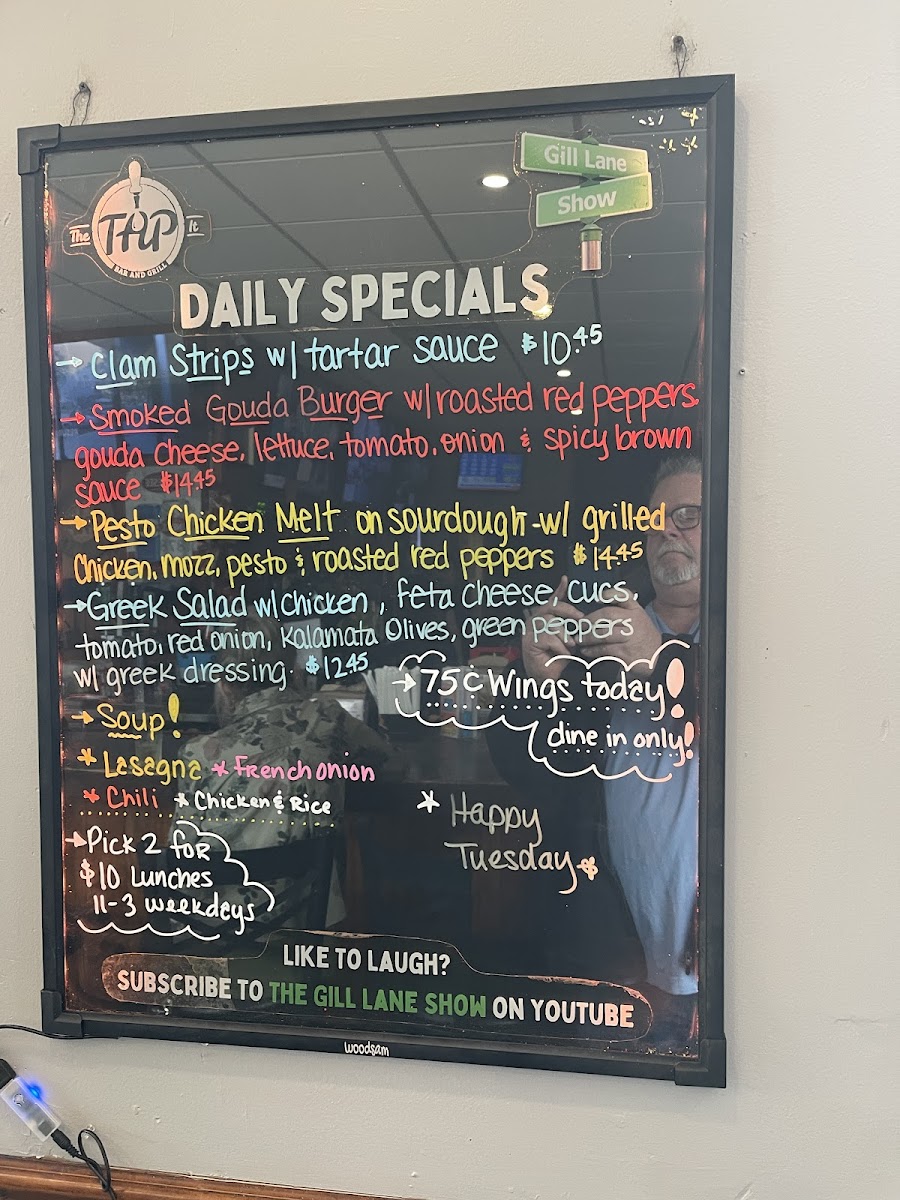 The TAP It
BAR AND GRILL
Gill Lane
Show
DAILY SPECIALS
→ Clam Strips w/ tartar sauce $10.45
→ Smoked Gouda Burger w/ roasted red peppers,
gouda cheese, lettuce, tomato, onion & spicy brown
sauce $14.45
→ Pesto Chicken Melt on sourdough - w/ grilled
Chicken, mozz, pesto & roasted red peppers $14.45
→ Greek Salad w/ chicken, feta cheese, cucs,
tomato, red onion, Kalamata Olives, green peppers
w/ greek dressing. $12.45
→ 75¢ Wings today!
dine in only!
→ Soup!
* Lasagna * French onion
* Chili * Chicken & Rice
→ Pick 2 for
$10 Lunches
11-3 weekdays
* Happy
Tuesday
LIKE TO LAUGH?
SUBSCRIBE TO THE GILL LANE SHOW ON YOUTUBE
woodsam